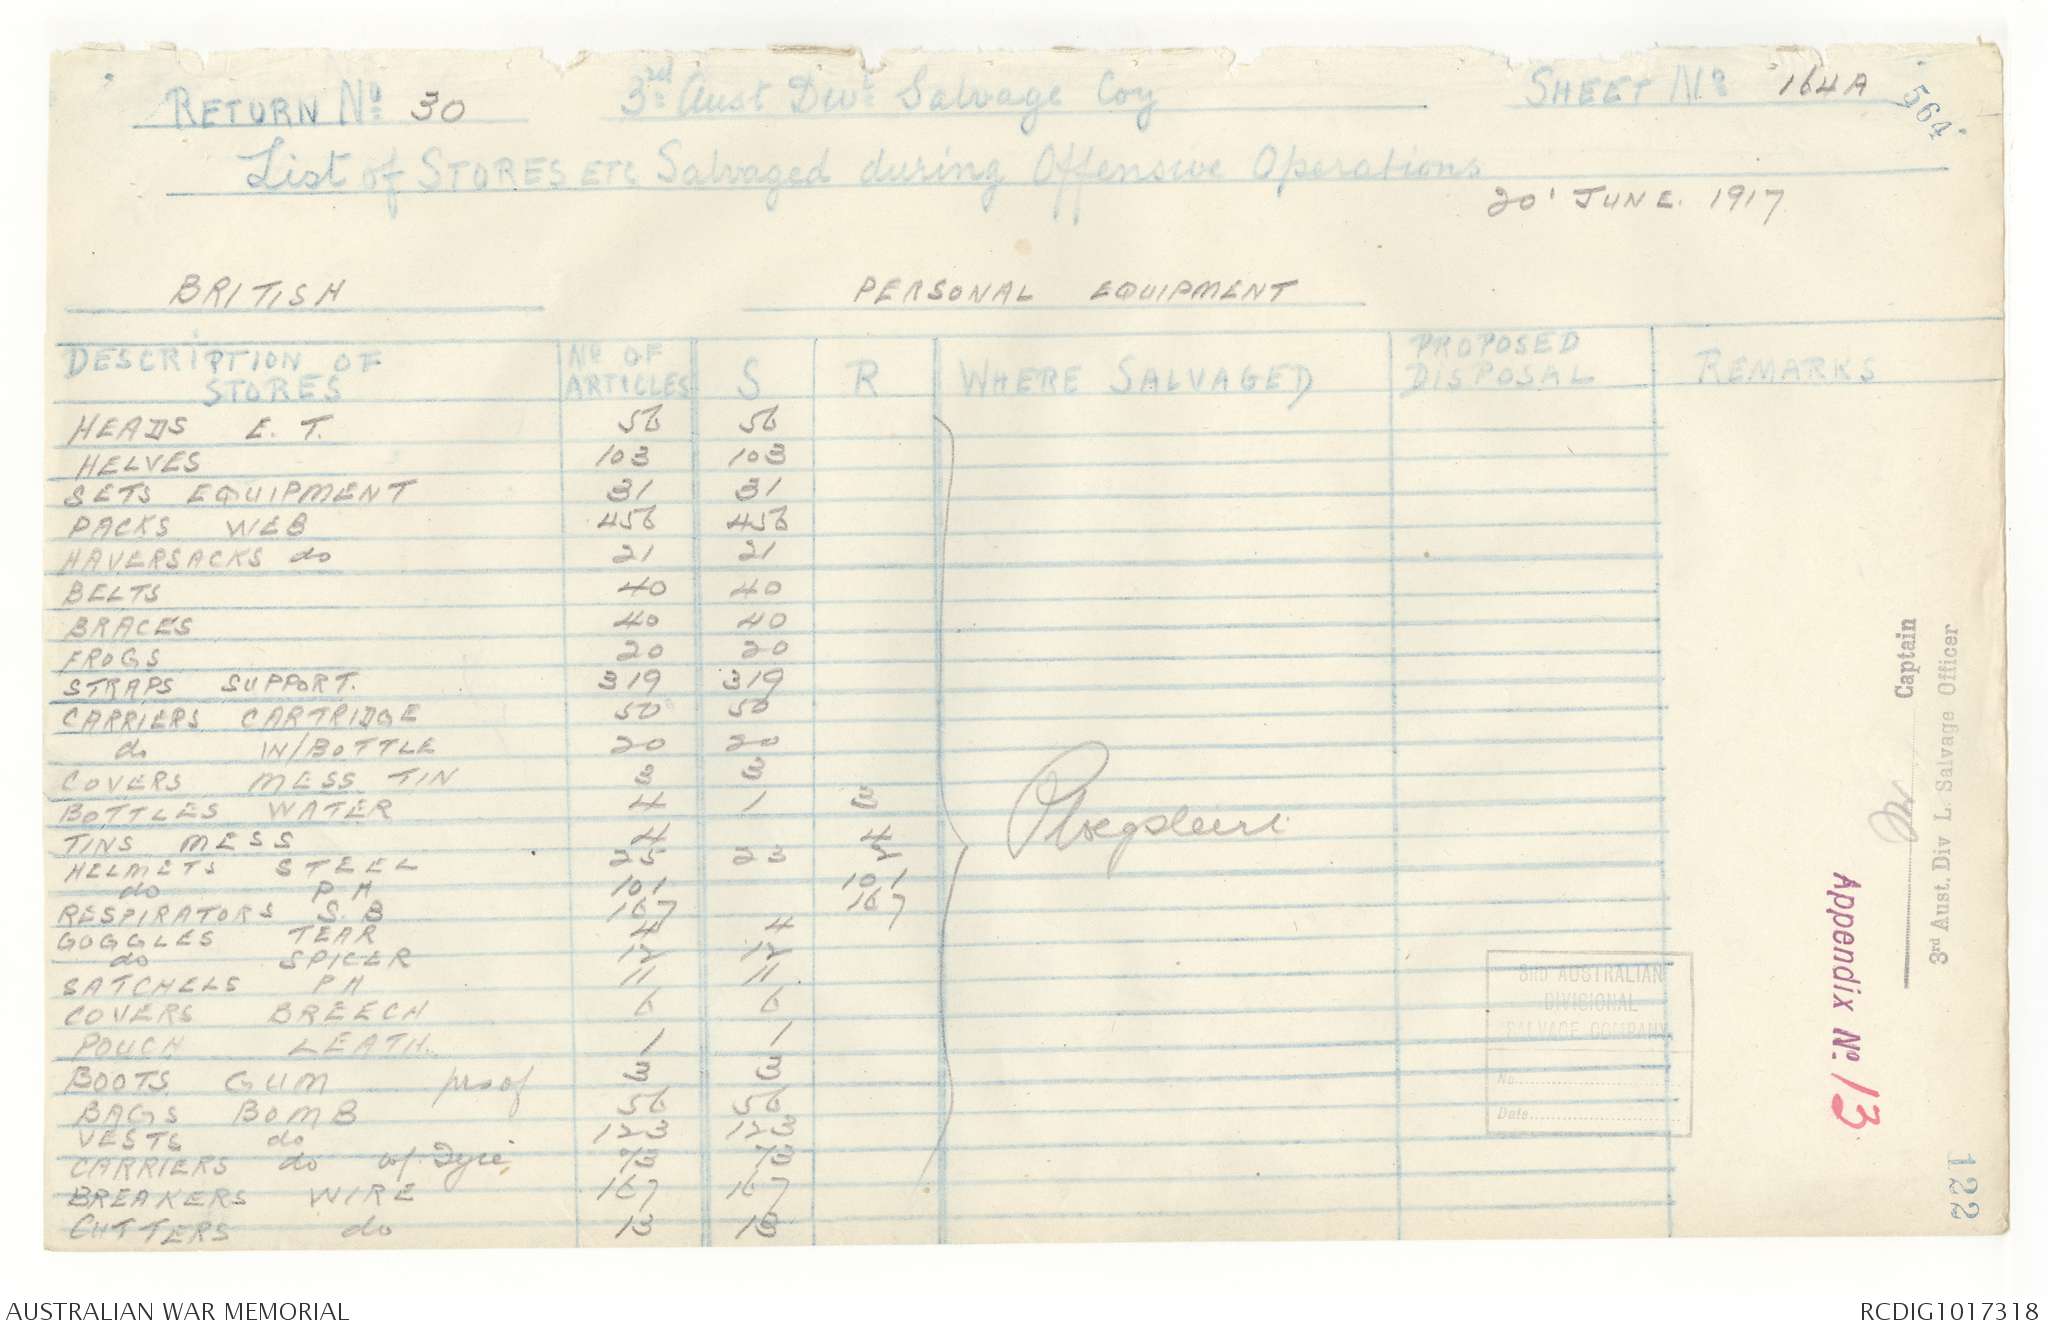 RETURN No 30 3rd Aust Divl Salvage Coy SHEET No 164A
564
List of STORES ETC Salvaged during Offensive Operations
20' JUNE. 1917
BRITISH PERSONAL EQUIPMENT
DESCRIPTION OF STORES No OF ARTICLES S R WHERE SALVAGED PROPOSED DISPOSAL REMARKS
HEADS E. T. 56 56
HELVES 103 103
SETS EQUIPMENT 31 31
PACKS WEB 456 456
HAVERSACKS do 21 21
BELTS 40 40
BRACES 40 40
FROGS 20 20
STRAPS SUPPORT. 319 319
CARRIERS CARTRIDGE 50 50
do W/BOTTLE 20 20
COVERS MESS TIN 3 3
BOTTLES WATER 4 1 3
TINS MESS 4 4
HELMETS STEEL 25 23 2
do P H 101 101
RESPIRATORS S. B 167 167
GOGGLES TEAR 4 4
do SPICER 12 12
SATCHELS P H 11 11
COVERS BREECH 6 6
POUCH LEATH. 1 1
BOOTS GUM 3 3
BAGS BOMB 56 56
VESTS do 123 123
CARRIERS do 73 73
BREAKERS WIRE 167 167
CUTTERS do 13 13
Ploegsteert
3RD AUSTRALIAN
DIVISIONAL
SALVAGE COMPANY
No
Date
Captain
3rd Aust. Div L. Salvage Officer
Appendix No. 13
122
AUSTRALIAN WAR MEMORIAL RCDIG1017318